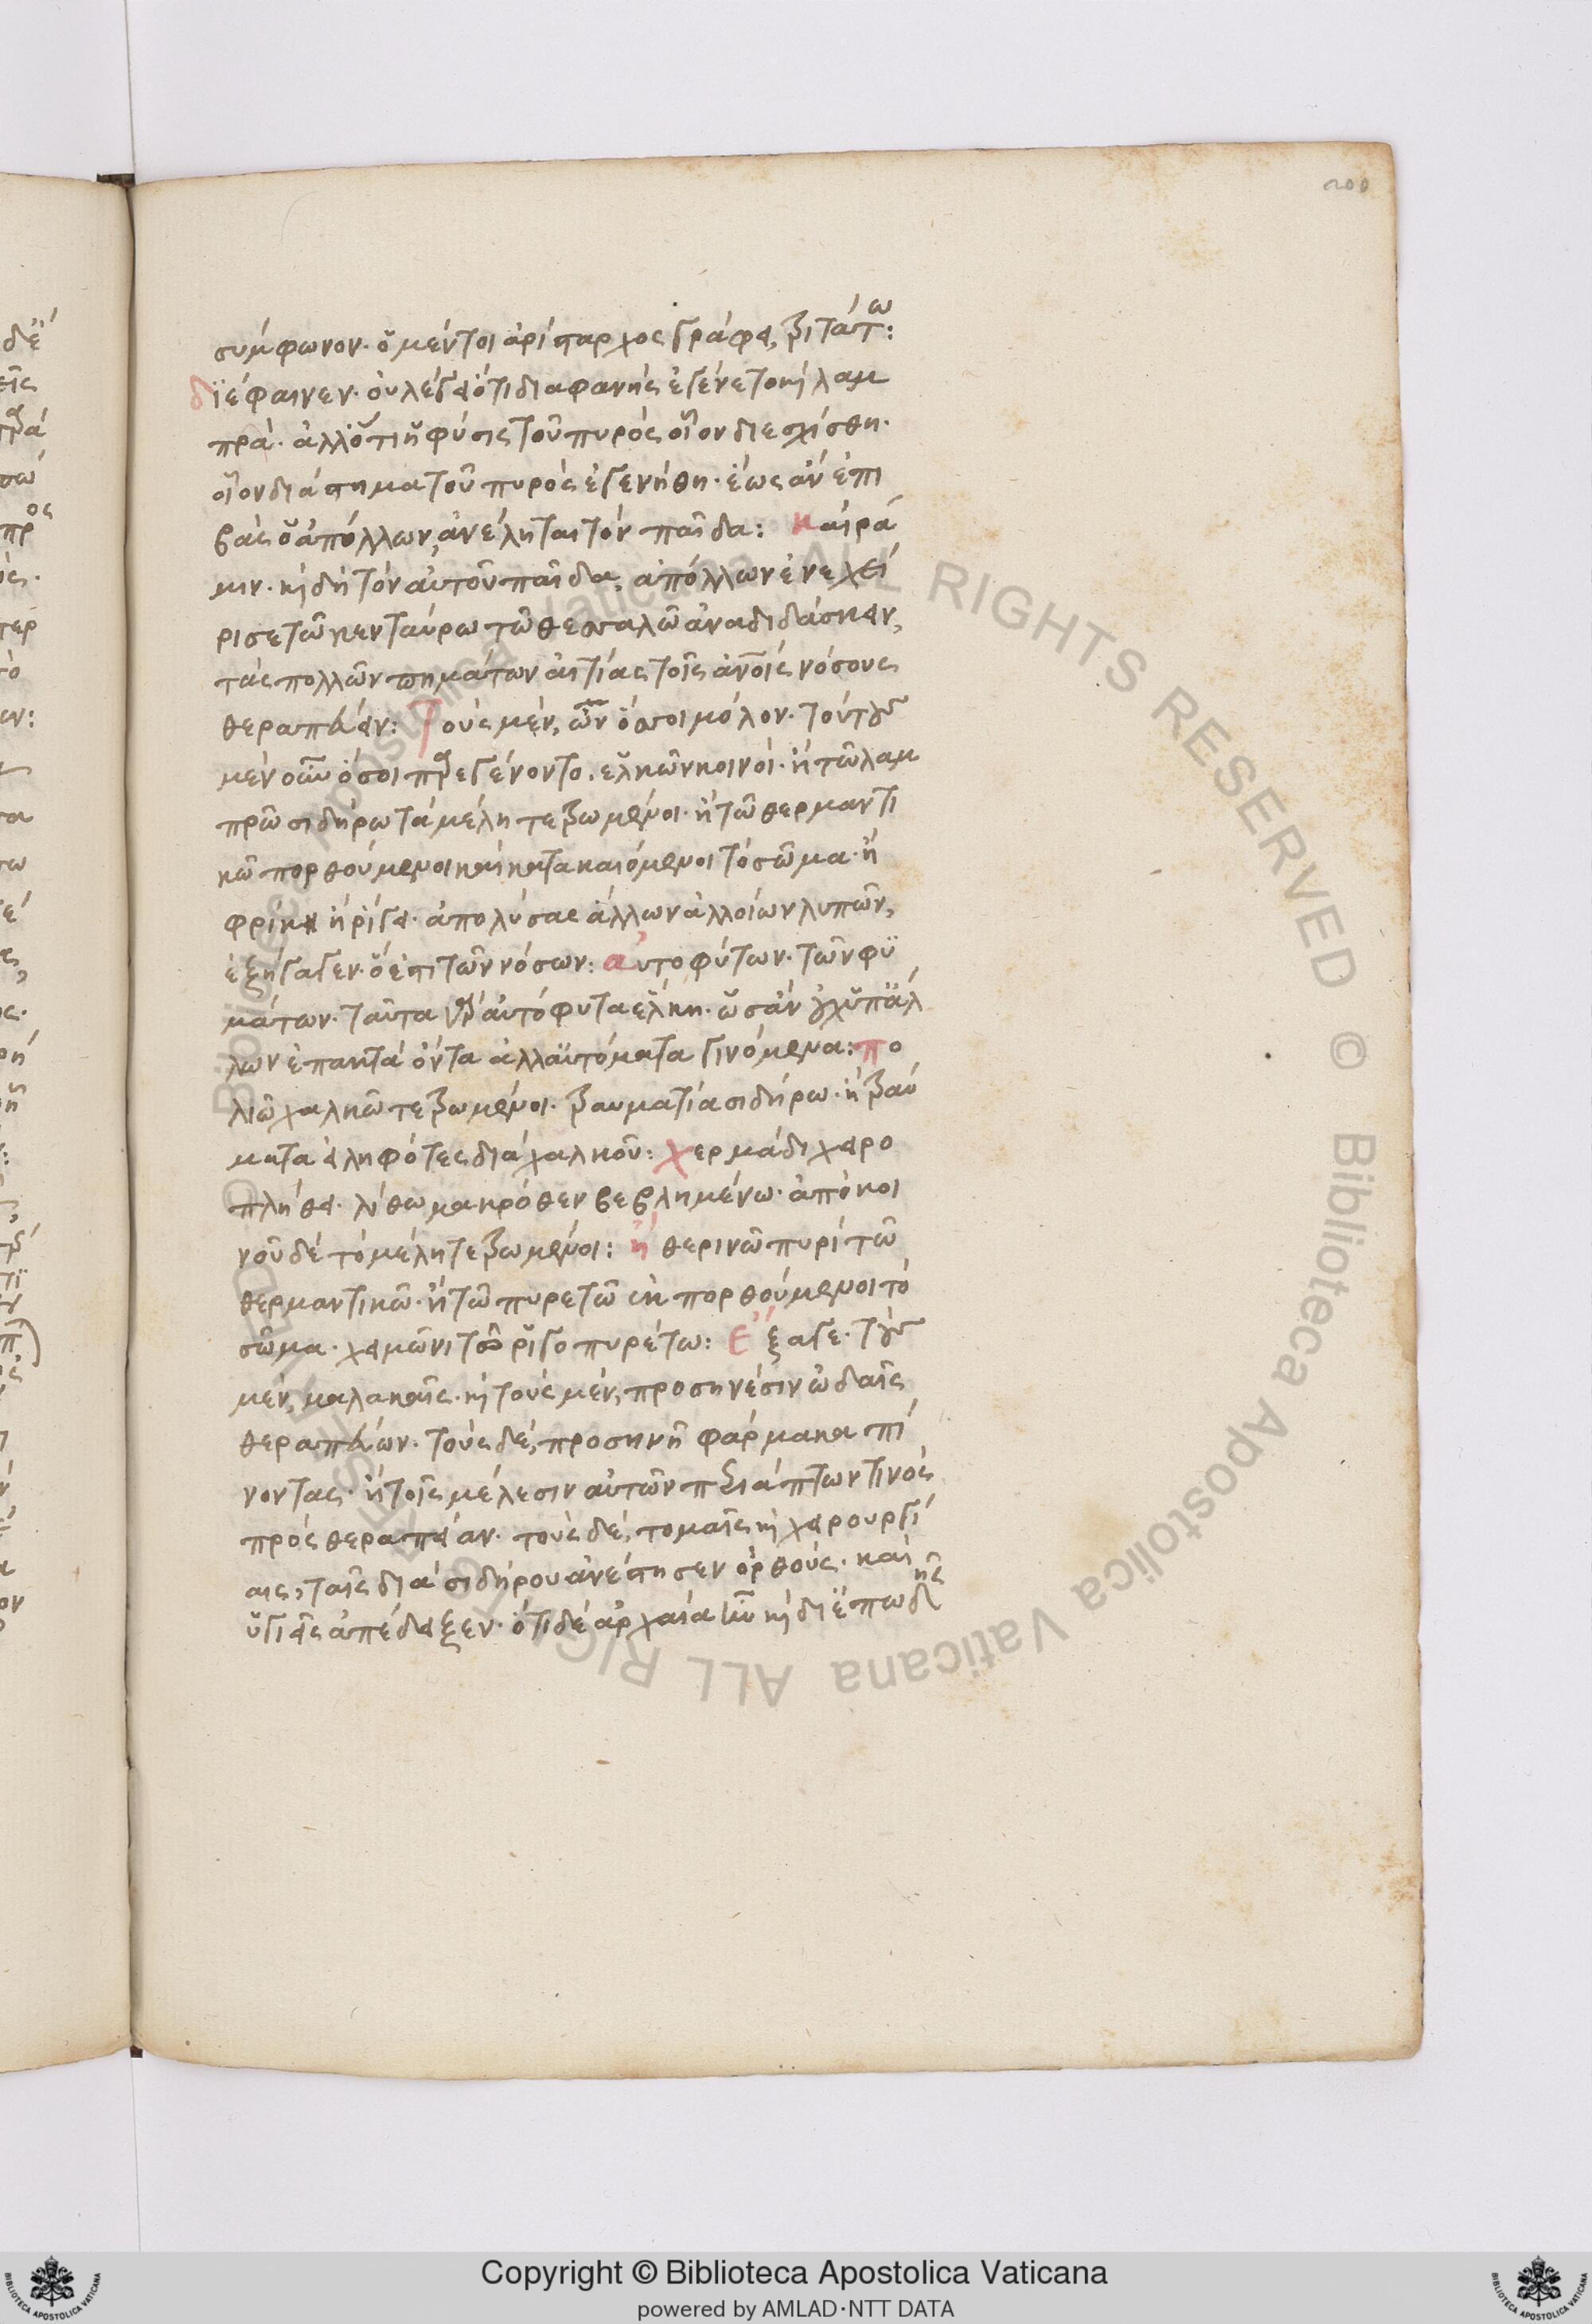 200
σύμφωνον· ὁ μέντοι ἀρίσταρχος γράφει, τριτάτω:
διέφαινεν· οὐ λέγει ὅτι διαφανὴς ἐγένετο καὶ λαμ
πρά· ἀλλ' ὅτι ἡ φύσις τοῦ πυρὸς οἷον διεσχίσθη·
οἷον διάστημα τοῦ πυρὸς ἐγενήθη· ἕως ἂν ἐπι
βὰς ὁ ἀπόλλων, ἀνέληται τὸν παῖδα: καί ῥά
μιν· καὶ δὴ τὸν αὐτοῦ παῖδα, ἀπόλλων ἐνεχεί
ρισε τῶ κενταύρω τῶ θεσσαλῶ ἀναδιδάσκειν,
τὰς πολλῶν πημάτων αἰτίας τοῖς ἀνοις νόσους
θεραπεύειν: Τοὺς μὲν, ὦν ὅσσοι μόλον· τούτους
μὲν οὖν ὅσοι παρεγένοντο, ἑλκῶν κοινοί· ἢ τῶ λαμ
πρῶ σιδήρω τὰ μέλη τετρωμένοι· ἢ τῶ θερμαντι
κῶ πορθούμενοι καὶ κατακαιόμενοι τὸ σῶμα· ἢ
φρίκη ἢ ῥίγει· ἀπολύσας ἄλλων ἀλλοίων λυπῶν,
ἐξήγαγεν· ὃ ἐπὶ τῶν νόσων: αὐτοφύτων· τῶν φυ
μάτων· ταῦτα γὰρ αὐτόφυτα ἕλκη· ὡσὰν οὐχ ὑπ' ἄλ
λων ἐπακτὰ ὄντα ἀλλ' αὐτόματα γινόμενα: πο
λιῶ χαλκῶ τετρωμένοι· τραυματίαι σιδήρω· ἢ τραύ
ματα εἰληφότες διὰ χαλκοῦ: χερμάδι χειρο
πληθεῖ· λίθω μακρόθεν βεβλημένω· ἀπὸ κοι
νοῦ δὲ τὸ μέλη τετρωμένοι: ἢ θερινῶ πυρὶ τῶ
θερμαντικῶ· ἢ τῶ πυρετῶ ἐκπορθούμενοι τὸ
σῶμα· χειμῶνι τῶ ῥιγοπυρέτω: Ἔξαγε· τοὺς
μὲν, μαλακαῖς· καὶ τοὺς μὲν, προσηνέσιν ὠδαῖς
θεραπεύων· τοὺς δὲ, προσηνῆ φάρμακα πί
νοντας· ἢ τοῖς μέλεσιν αὐτῶν περιάπτων τινὸς
πρὸς θεραπείαν· τοὺς δὲ, τομαῖς καὶ χειρουργί
αις, ταῖς διὰ σιδήρου ἀνέστησεν ὀρθούς· καὶ
ὑγιεῖς ἀπέδειξεν· ὅτι δὲ ἀρχαία ἦν καὶ δι' ἐπωδῆς